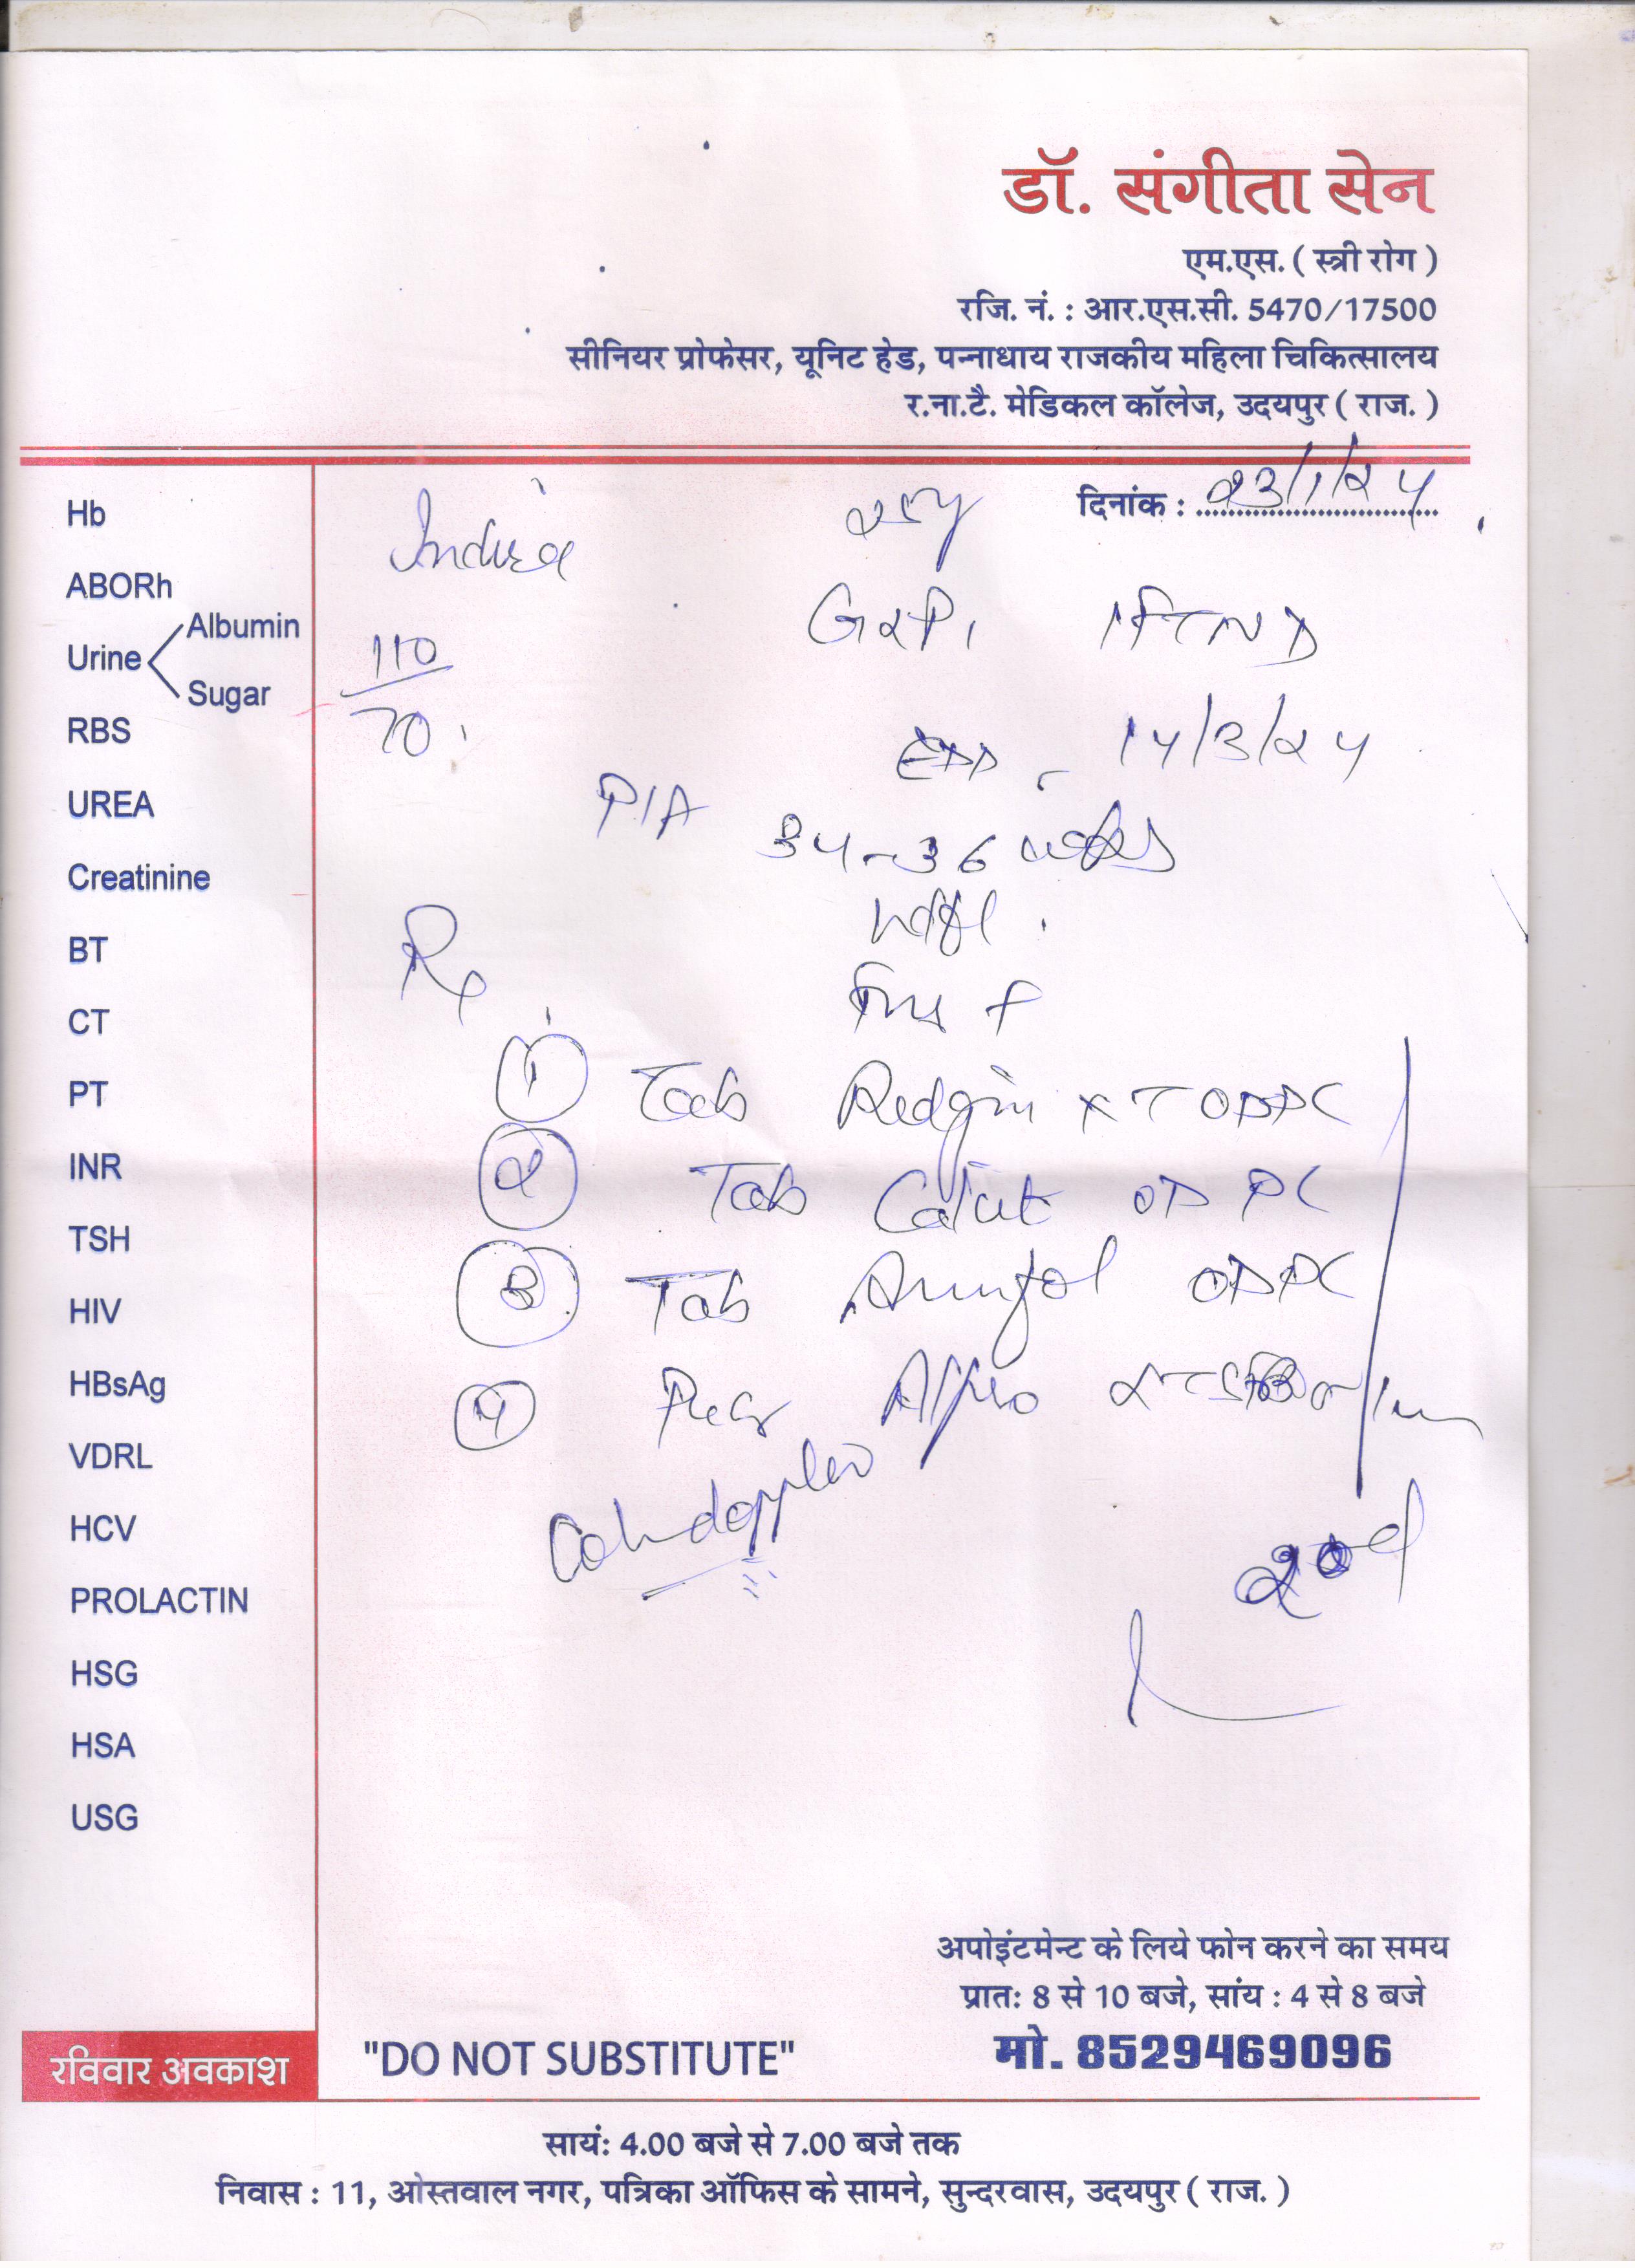 डॉ. संगीता सेन
एम.एस. ( स्त्री रोग )
रजि. नं. : आर.एस.सी. 5470/17500
सीनियर प्रोफेसर, यूनिट हेड, पन्नाधाय राजकीय महिला चिकित्सालय
र.ना.टै. मेडिकल कॉलेज, उदयपुर ( राज. )
दिनांक : 23/1/24
Hb
ABORh
Urine Albumin
Sugar
RBS
UREA
Creatinine
BT
CT
PT
INR
TSH
HIV
HBsAg
VDRL
HCV
PROLACTIN
HSG
HSA
USG
Indira 25y
G2P1 1FTND
110/70
EDD - 14/3/24
P/A 34-36 weeks
Rx
1 Tab OD PC
2 Tab OD PC
3 Tab OD PC
4
Colordoppler
20d
अपोइंटमेन्ट के लिये फोन करने का समय
प्रातः 8 से 10 बजे, सांय : 4 से 8 बजे
मो. 8529469096
रविवार अवकाश
"DO NOT SUBSTITUTE"
सायं: 4.00 बजे से 7.00 बजे तक
निवास : 11, ओस्तवाल नगर, पत्रिका ऑफिस के सामने, सुन्दरवास, उदयपुर ( राज. )